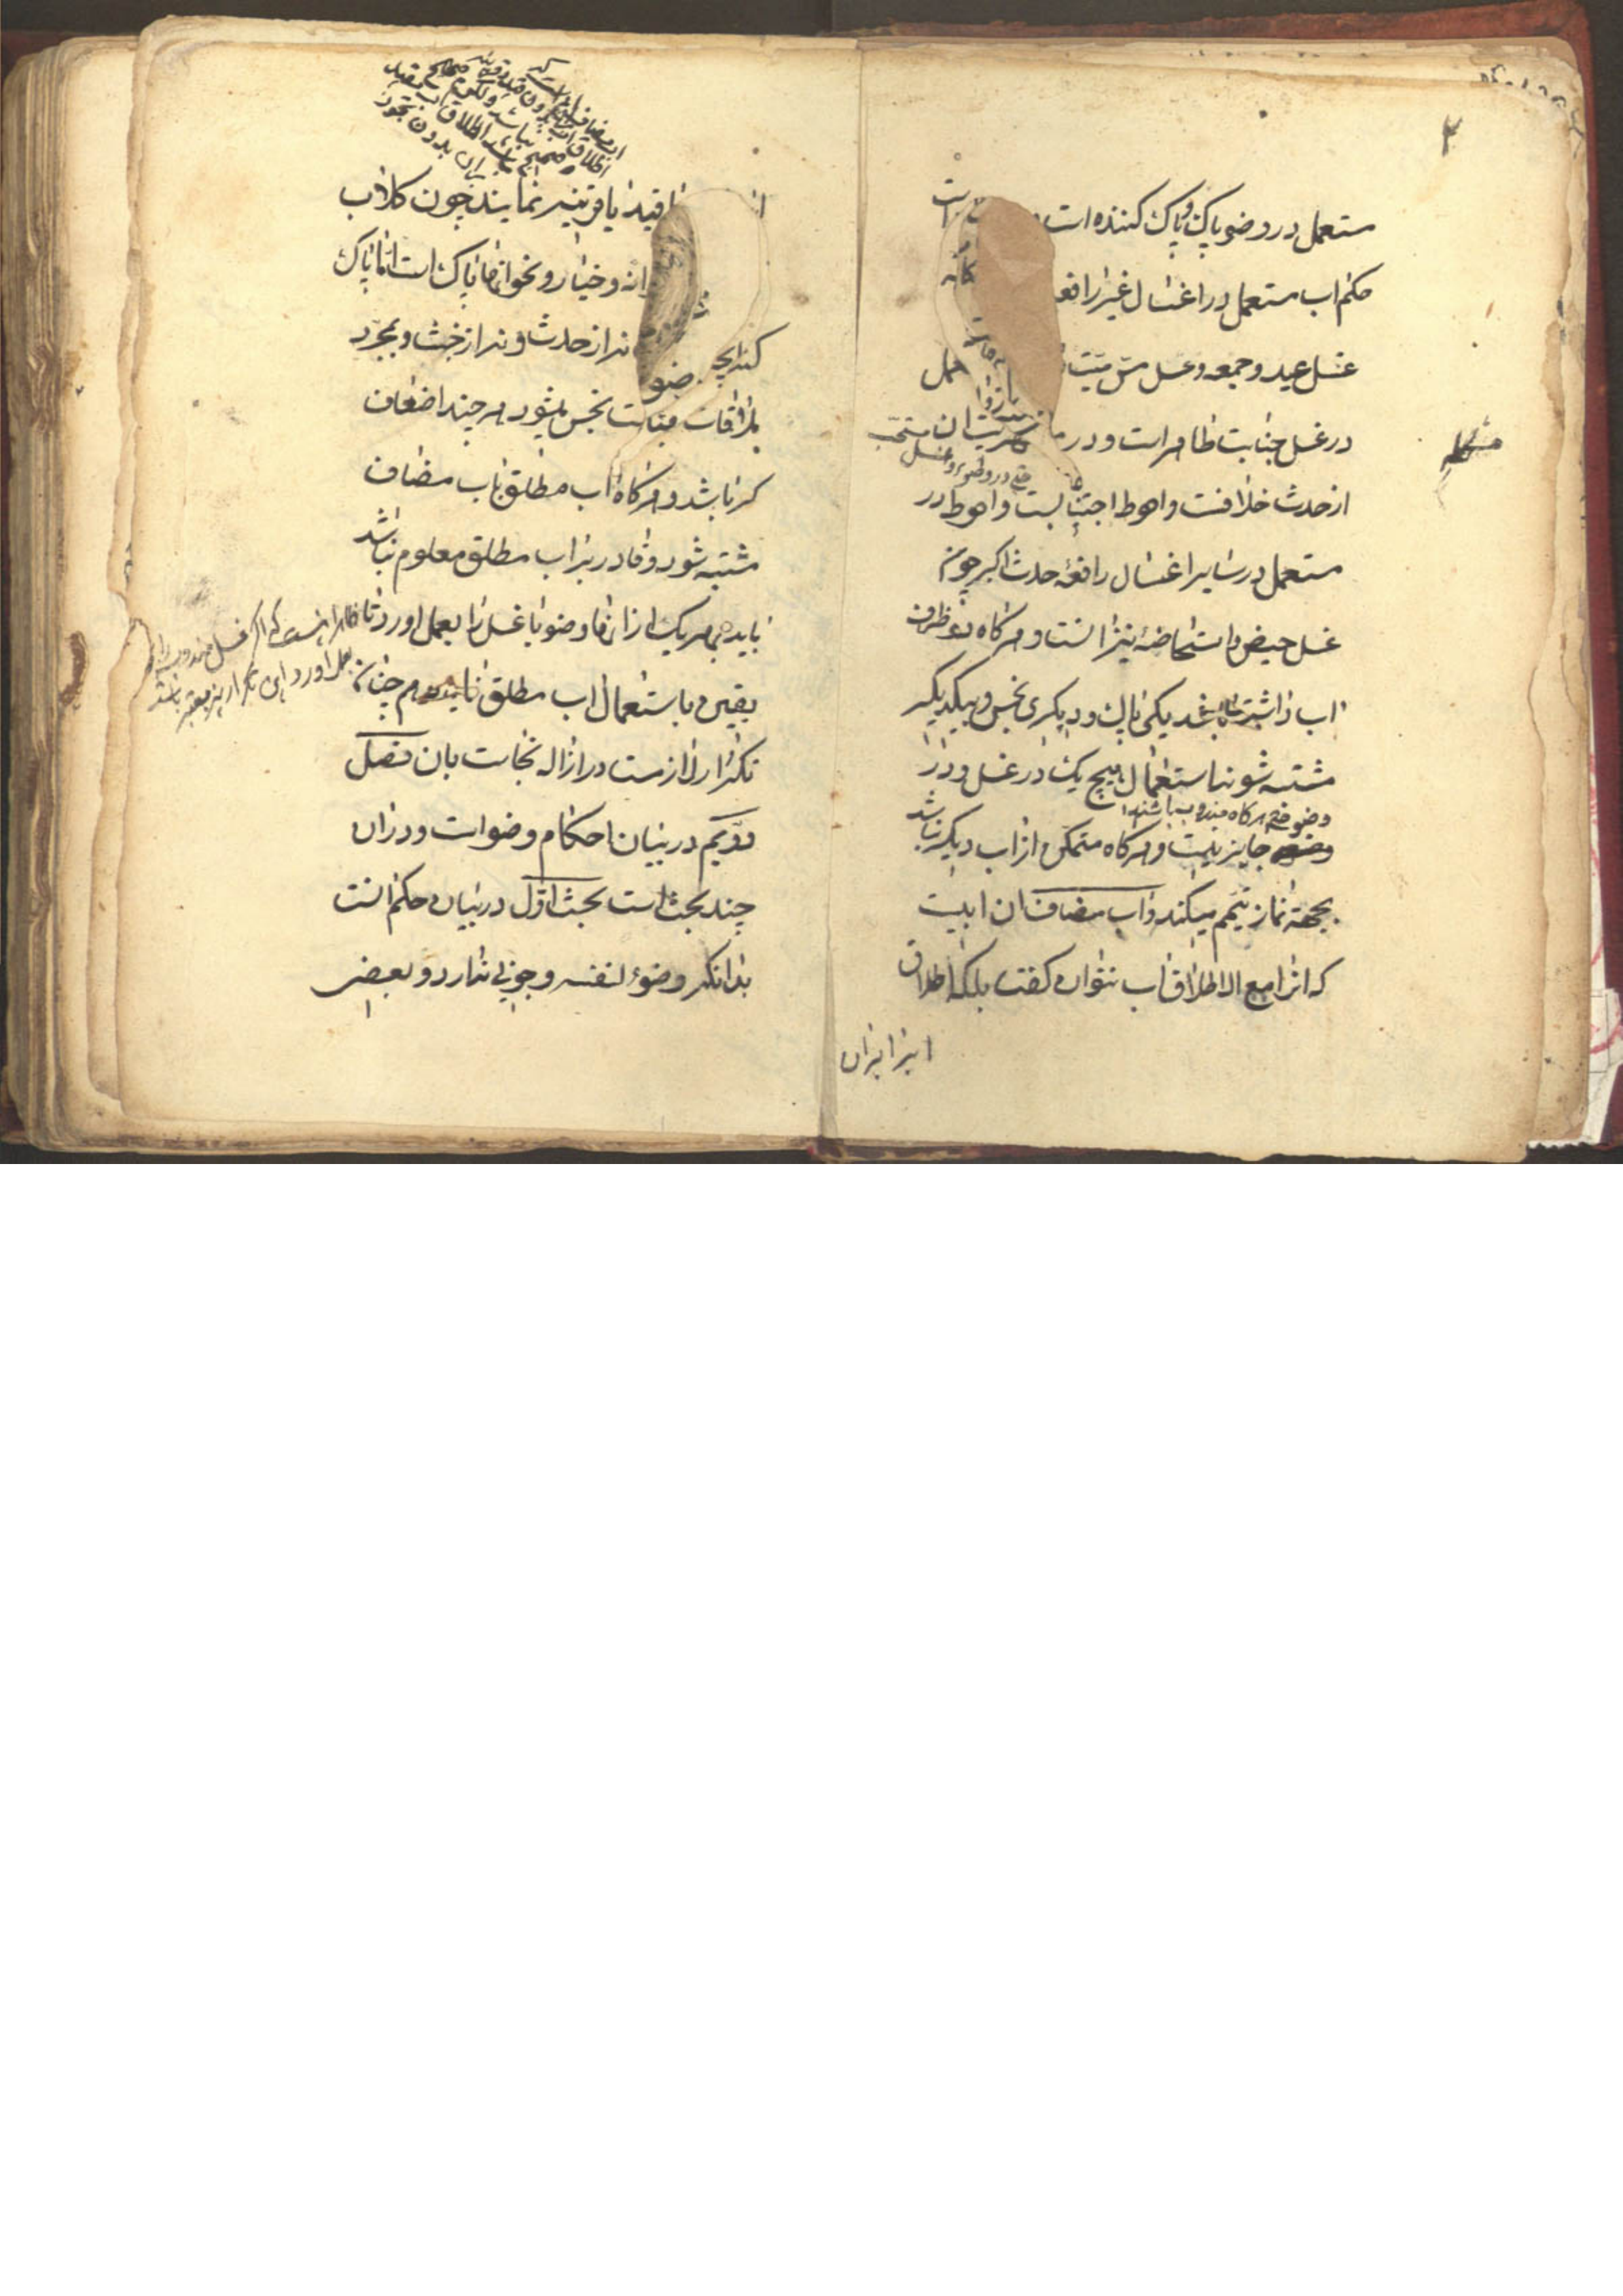 مستعمل در وضو پاک و پاک کننده است
حکم اب مستعمل در اغسال غیر رافعه
غسل عید و جمعه و غسل مس میت
در غسل جنابت طاهر است و در
از حدث خلافست و احوط اجتنابست و احوط در
حتی در وضو و غسل مستحب
مستعمل در سایر اغسال رافعهٔ حدث اکبر چون
غسل حیض و استحاضه نیز انست و هر کاه دو ظرف
اب داشته باشد یکی پاک و دیکری نجس و بیکدیکر
مشتبه شوند استعمال هیچ یک در غسل و در
وضو حتی هر کاه مندوب باشند
جایز نیست و هر کاه متمکن از اب دیکر نباشد
بجهة نماز تیمم میکند و اب مضاف ان ابیست
که انرا مع الاطلاق اب نتوان کفت بلکه اطلاق
ابرا بران
قید یا قرینه نمایند چون کلاب
و خیار و نحو انها پاک است اما پاک
کننده نه از حدث و نه از خبث و بمجرد
ملاقات نجاست نجس میشود هر چند اضعاف
کر باشد و هر کاه اب مطلق باب مضاف
مشتبه شود و قادر بر اب مطلق معلوم نباشد
باید بهر یک از انها وضو یا غسل را بعمل اورد تا
یقین باستعمال اب مطلق نماید همچنانکه
تکرار لازمست در ازاله نجاست بان فصل
دویم در بیان احکام وضو است و در ان
چند بحث است بحث اول در بیان حکم انست
بدانکه وضوء لنفسه وجوبی ندارد و بعضی
ظاهر اینست که اگر غسل مندوب را
بعمل اورد این تکرار نیز معتبر باشد